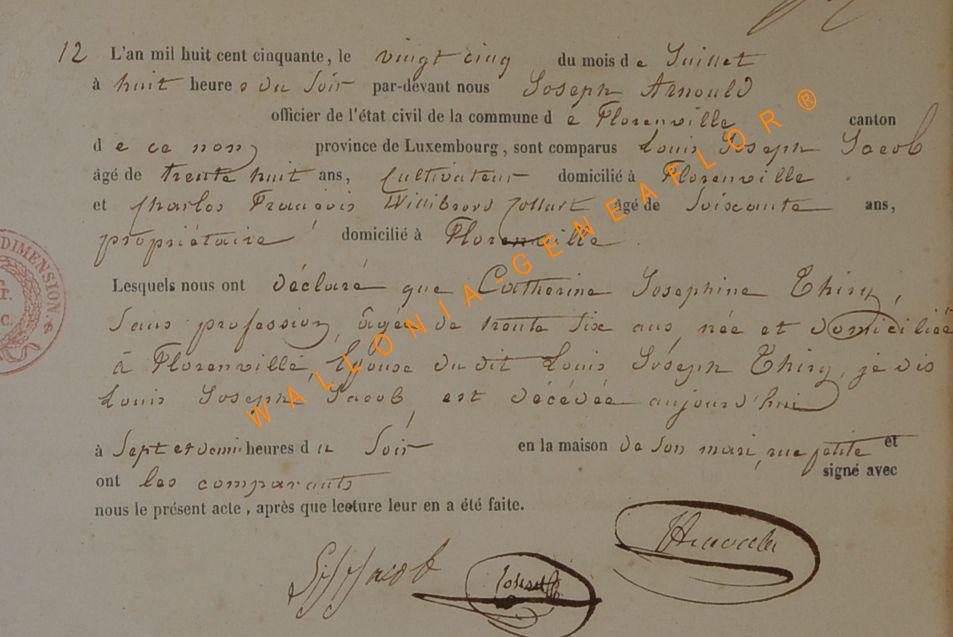 12 L'an mil huit cent cinquante, le vingt cinq du mois de Juillet
à huit heures du Soir par-devant nous Joseph Arnould
officier de l'état civil de la commune de Florenville canton
de ce nom, province de Luxembourg, sont comparus Louis Joseph Jacob
âgé de trente huit ans, Cultivateur domicilié à Florenville
et Charles François Willibrord âgé de Soixante ans,
propriétaire domicilié à Florenville.
Lesquels nous ont déclaré que Catherine Josephine Thiry,
Sans profession, âgée de trente six ans née et domiciliée
à Florenville, Epouse du dit Louis Joseph Thiry, je dis
Louis Joseph Jacob, est décédée aujourd'hui
à Sept et demi heures du Soir en la maison de son mari, rue petite et
ont les comparants signé avec
nous le présent acte, après que lecture leur en a été faite.
Jacob
DIMENSION.
WALLONIA-GENEAFLOR ®